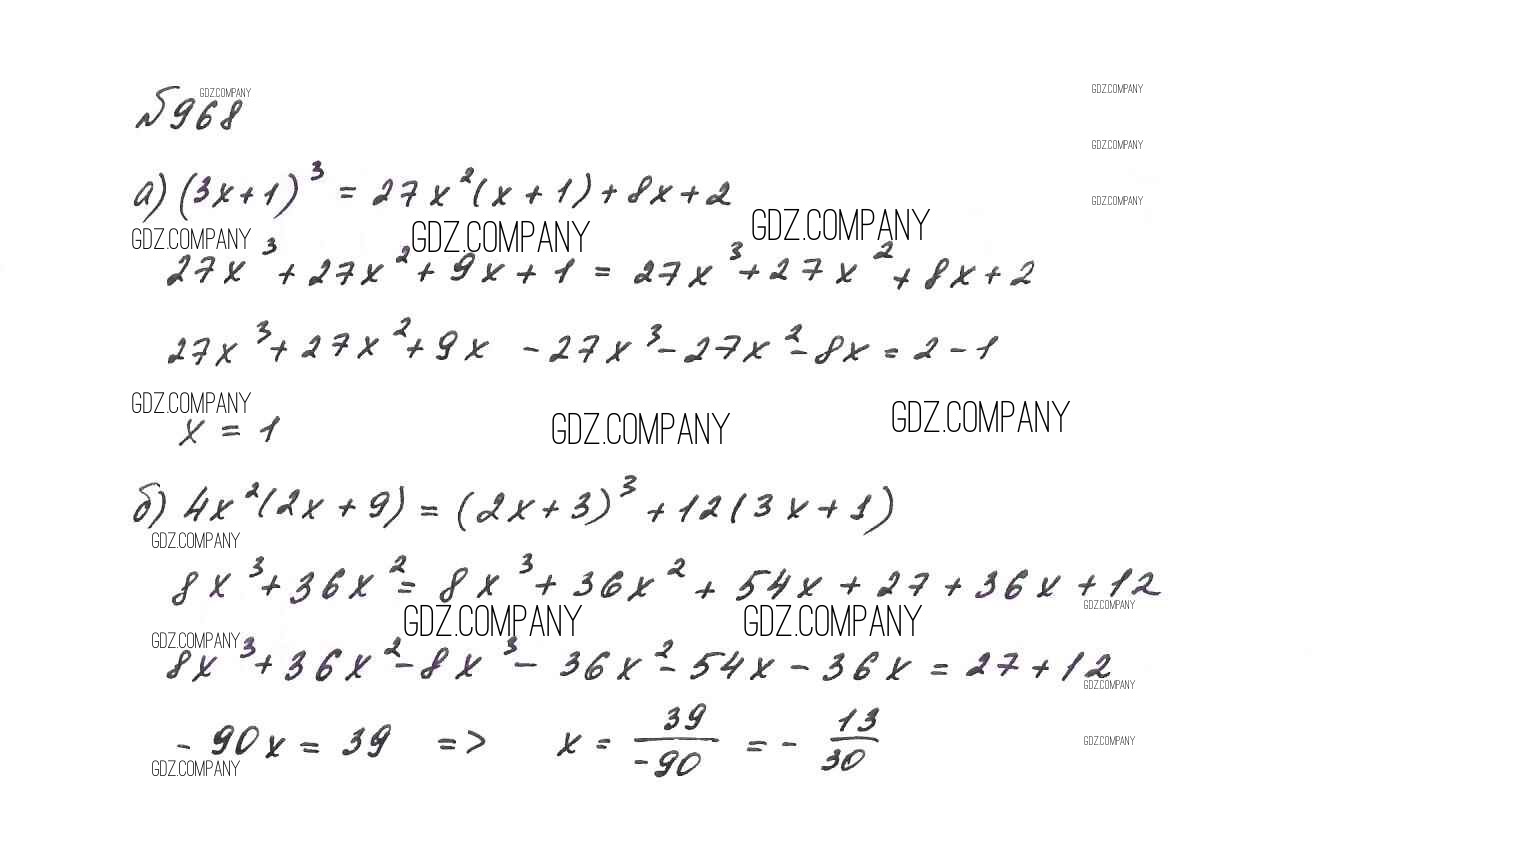 GDZ.COMPANY GDZ.COMPANY
№968
GDZ.COMPANY
а) (3x+1)³ = 27x²(x+1)+8x+2
GDZ.COMPANY
GDZ.COMPANY GDZ.COMPANY GDZ.COMPANY
27x³+27x²+9x+1 = 27x³+27x²+8x+2
27x³+27x²+9x -27x³-27x²-8x = 2-1
GDZ.COMPANY GDZ.COMPANY GDZ.COMPANY
x = 1
б) 4x²(2x+9) = (2x+3)³+12(3x+1)
GDZ.COMPANY
8x³+36x² = 8x³+36x²+54x+27+36x+12
GDZ.COMPANY GDZ.COMPANY GDZ.COMPANY
GDZ.COMPANY
8x³+36x²-8x³-36x²-54x-36x = 27+12
GDZ.COMPANY
-90x = 39 => x = 39/-90 = - 13/30
GDZ.COMPANY
GDZ.COMPANY